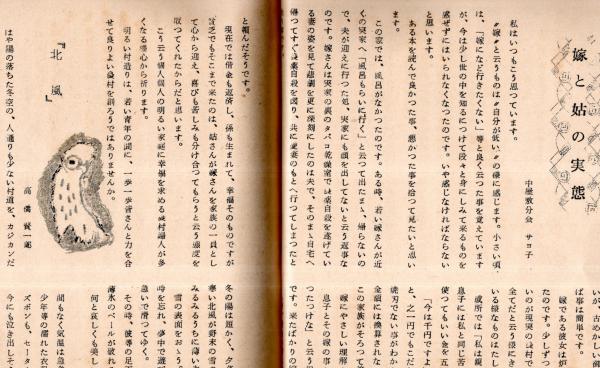 嫁と姑の実態
中屋敷分会 サヨ子
私はいつもこう思つています。
〃嫁〃と云うものは〃自分が低い〃の様に感じます。小さい頃、
は、「嫁になど行きたくない」等と良く云つた事を覚えています
が、今は少し世の中を知るにつけて段々と身にしみて来るものを
感ぜずにはいられなくなつたのです。いや感じなければならない
と思います。
ある本を読んで良かつた事、悪かつた事を拾つて見たいと思い
ます。
この家では、風呂がなかつたのです。ある時、若い嫁さんが近
くの実家へ「風呂もらいに行く」と云つて出たまゝ、帰らないの
で、夫が迎えに行つた処、実家にも顔を出してないと云う返事な
のです。嫁さんは実家の裏のタバコ乾燥室で農薬自殺を遂げてい
る妻の姿を見て悲劇を更に深刻にしたのは夫で、そのまゝ自宅へ
帰つてすぐ農薬自殺を図り、共に愛妻のもとへ行つてしまつたと
いが、古めかしい
ば事は簡単です。
嫁である彼女は炉
たのです。少しずつ
いのが現実の農村で
全てだと云う様にき
い様なものはたし
或所では「私は親
息子には私と同じ苦
使つてもいい金を五
「今は千円ですよ
と、之一円でもこだ
でない事がわか
金額には換算されな
この家族がそろつて
嫁にやさしい理解
息子とその嫁の事
つたつけな」と云う
です。来たばかりの
と頼んだそうです。
現在では借金も返済し、孫も生まれて、幸福そのものですが
貧乏でもそこまで来たのは、姑さんが嫁さんを家族の一員とし
て心から迎え、喜びも苦しみも分け合つてもらうと云う態度を
取つてくれたからだと思います。
こう云う個人個人の明るい家庭に幸福を求める農村婦人が多
くなる様心から祈ります。
明るい村造りは、若い青年の間に、一歩一歩皆さんと力を合
せて良りよい農村を創ろうではありませんか。
『北風』
高橋 賢一郎
はや陽の落ちた冬空の、人通りも少ない村道を、カジカンだ
冬の陽は短かく、夕
寒い北風が野末の雪
みるみるうちに薄い
雪の表面をおゝう
時を忘れ、夢中で遊
急いで滑つてゆく。
その時、彼等の見
薄氷のベールが破れ
何と哀しくも美し
間もなく気温は急
少年等の濡れた衣
ズボンも、セータ
今にも泣き出しそ